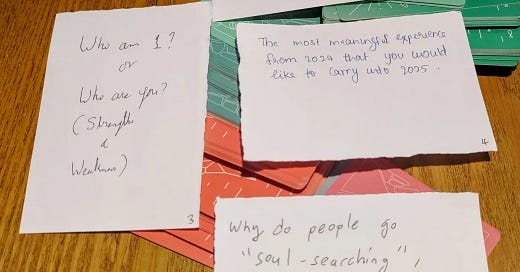 Who am I?
or
Who are you?
(Strengths
&
Weakness)
3
The most meaningful experience
from 2024 that you would
like to carry into 2025.
4
Why do people go
"soul-searching",